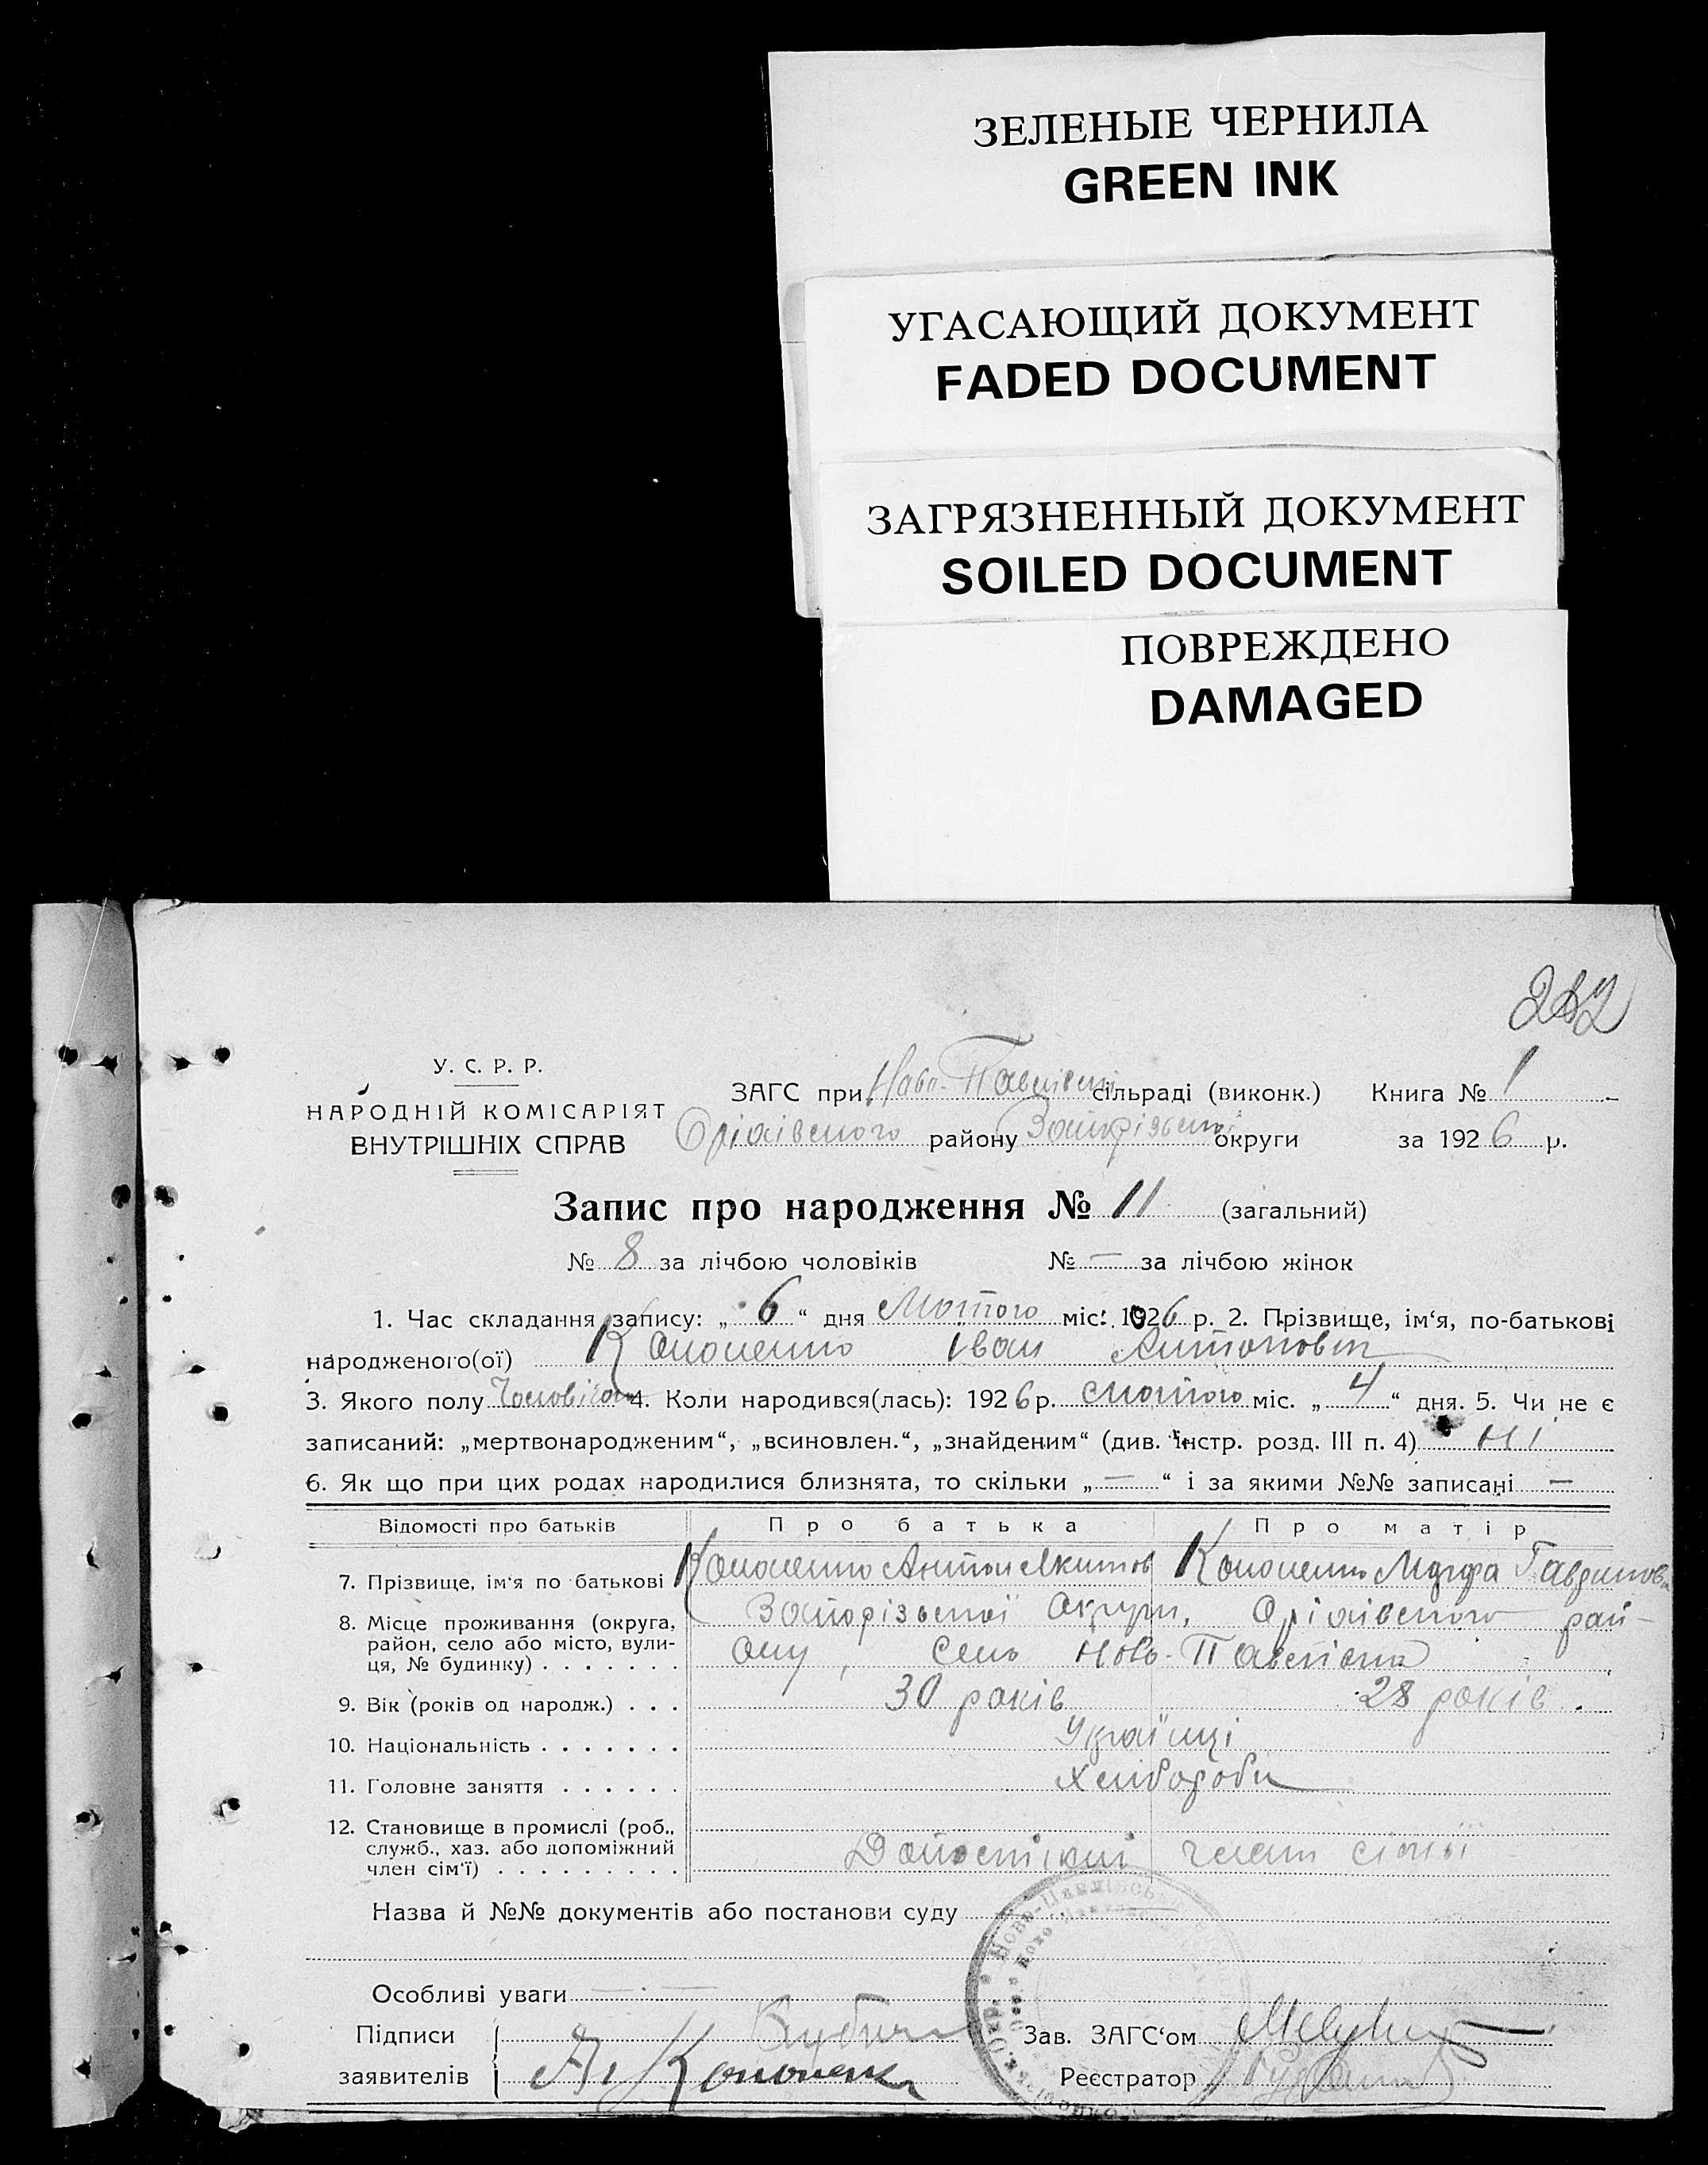 ЗЕЛЕНЫЕ ЧЕРНИЛА
GREEN INK
УГАСАЮЩИЙ ДОКУМЕНТ
FADED DOCUMENT
ЗАГРЯЗНЕННЫЙ ДОКУМЕНТ
SOILED DOCUMENT
ПОВРЕЖДЕНО
DAMAGED
У. С. Р. Р.
НАРОДНІЙ КОМІСАРІЯТ
ВНУТРІШНІХ СПРАВ
ЗАГС при Ново-Павлівській сільраді (виконк.) Книга № 1
Оріхівського району Запорізької округи за 1926 р.
Запис про народження № 11 (загальний)
№ 8 за лічбою чоловіків № — за лічбою жінок
1. Час складання запису: „ 6 “ дня Лютого міс. 1926 р. 2. Прізвище, ім‘я, по-батькові
народженого(ої) Кононенко Іван Антонович
3. Якого полу Чоловічого 4. Коли народився(лась): 1926 р. Лютого міс. „ 4 “ дня. 5. Чи не є
записаний: „мертвонародженим“, „всиновлен.“, „знайденим“ (див. Інстр. розд. III п. 4) ні
6. Як що при цих родах народилися близнята, то скільки „ — “ і за якими №№ записані —
Відомості про батьків Про батька Про матір
7. Прізвище, ім‘я по батькові Кононенко Антон Якимов Кононенко Марфа Гаврилова
8. Місце проживання (округа, Запорізької Округи, Оріхівського рай-
район, село або місто, вули- ону, село Ново-Павлівка
ця, № будинку) . . . . . . .
9. Вік (років од народж.) . . . 30 років 28 років
10. Національність . . . . . . . Українці
11. Головне заняття . . . . . . Хлібороби
12. Становище в промислі (роб.,
служб., хаз. або допоміжний
член сім‘ї) . . . . . . . . . . член сім'ї
Назва й №№ документів або постанови суду
Особливі уваги
Підписи
заявителів А. Кононенко
Зав. ЗАГС‘ом
Реєстратор